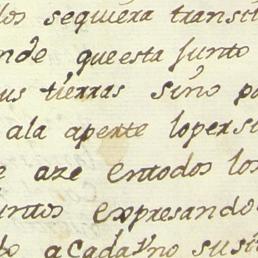 los sequiera transi
onde que esta Junto
us tierras sino po
ala aperte lopersi
e aze entodos los
untos expresando
do acadavno susi